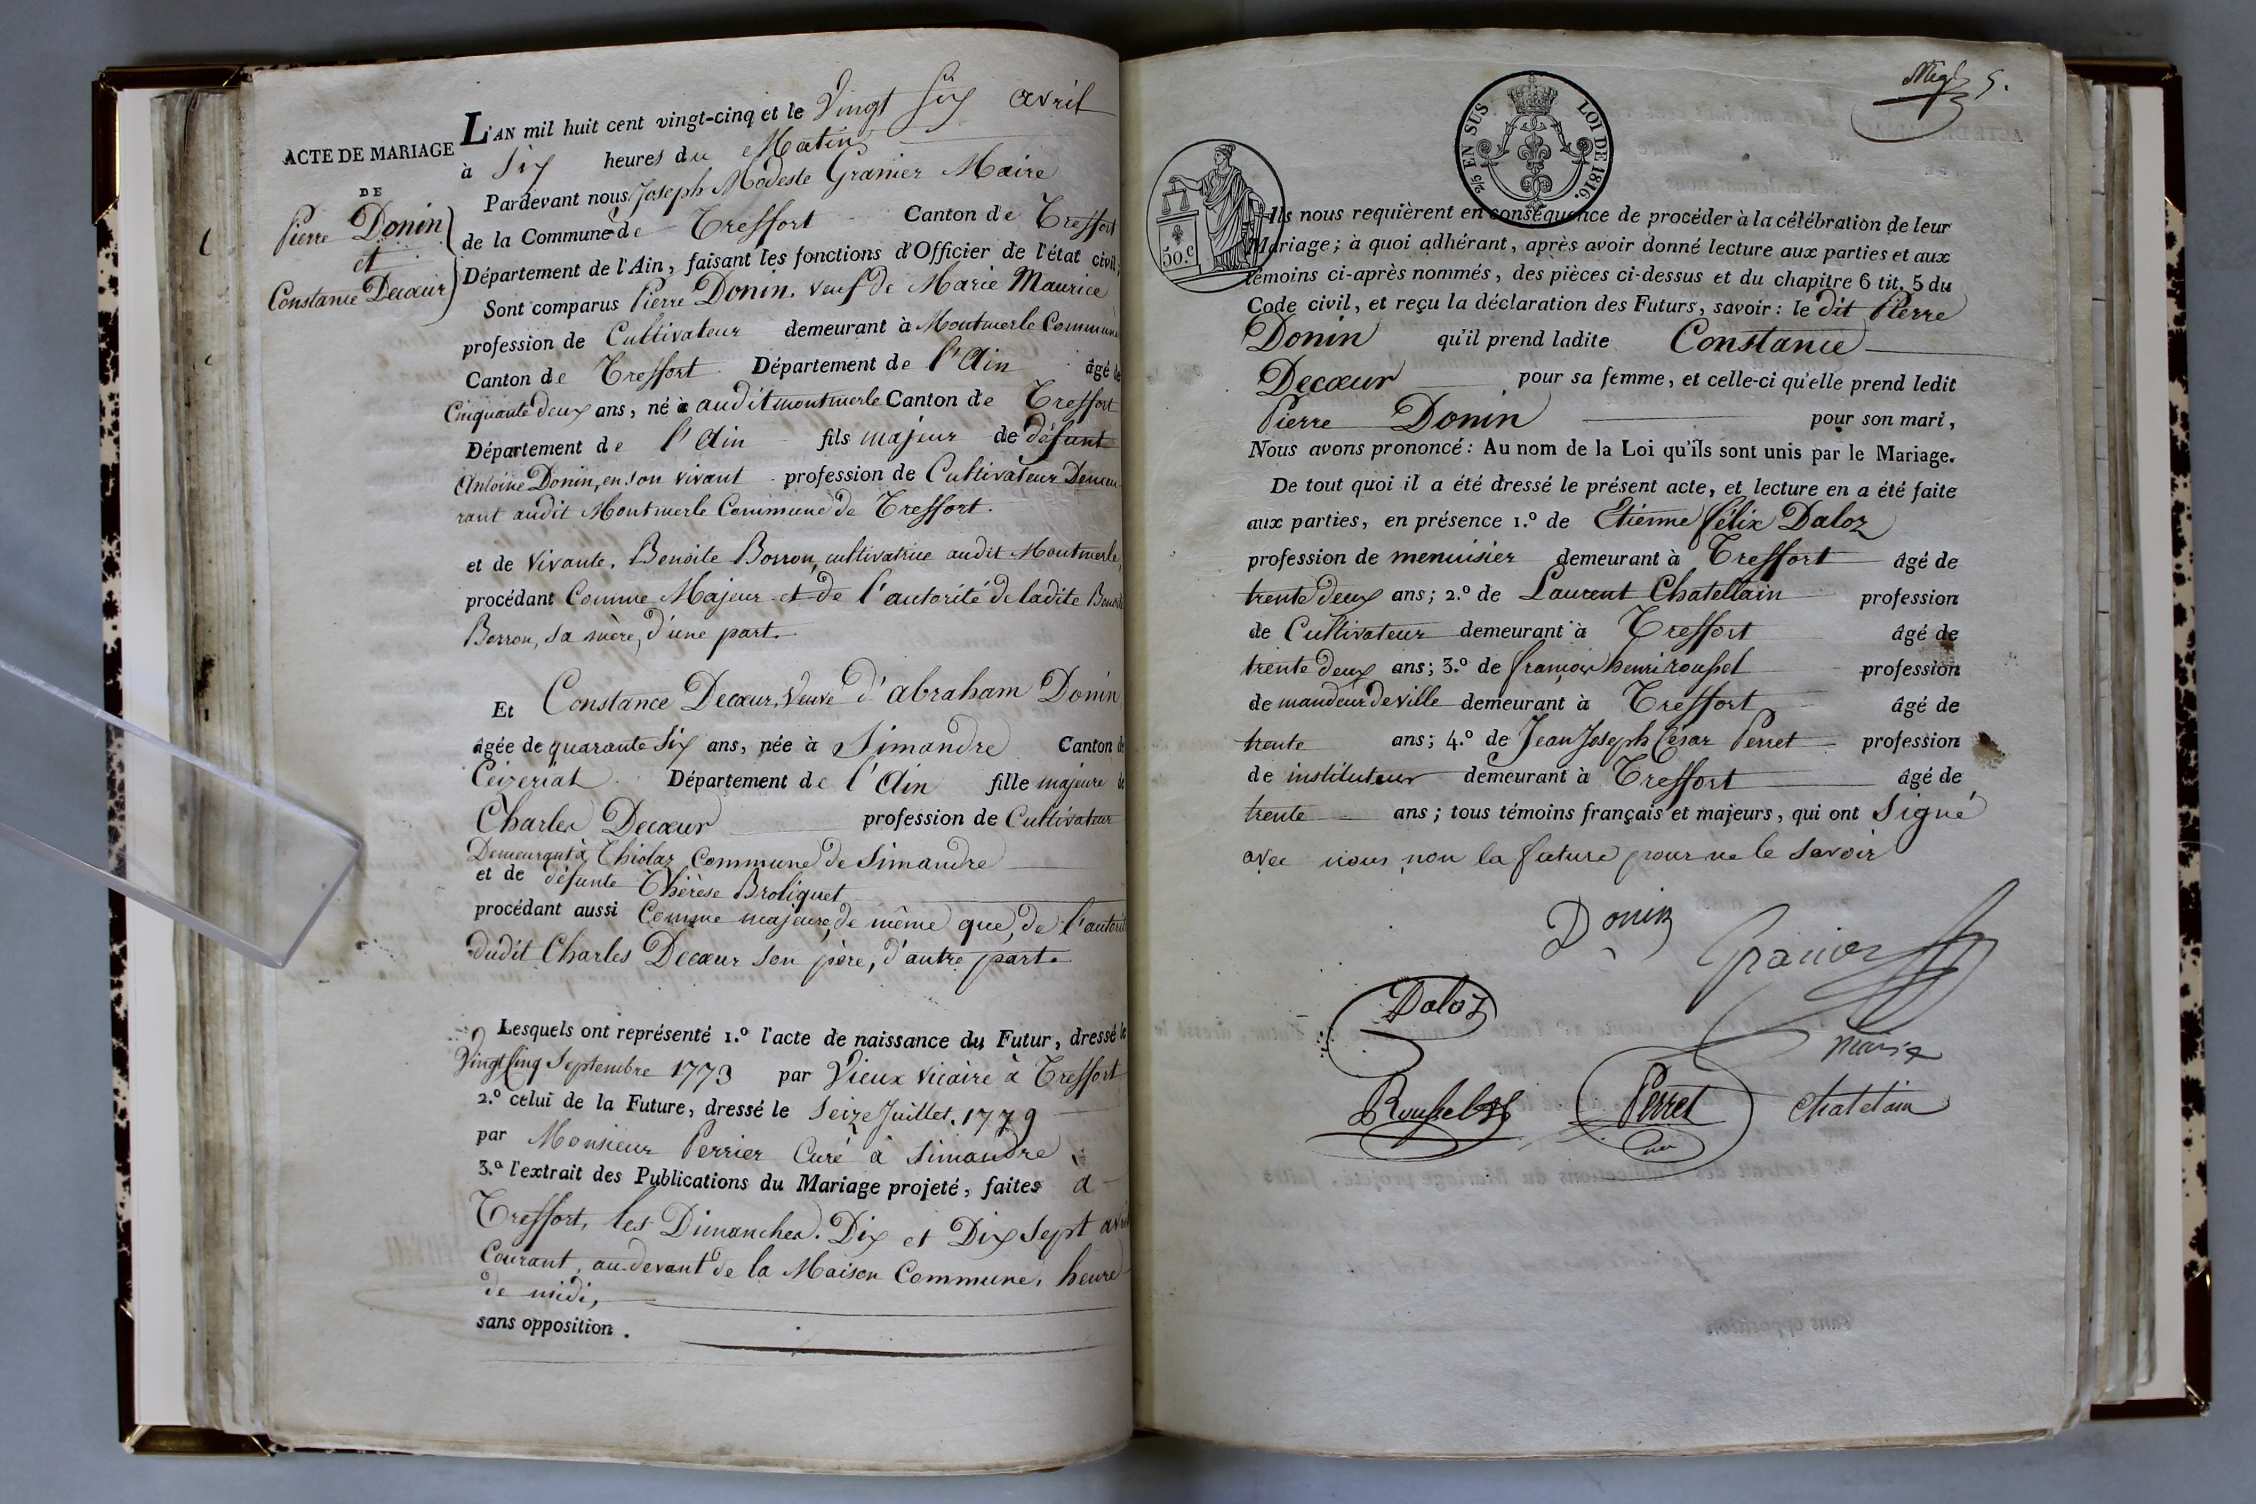 ACTE DE MARIAGE
DE
Pierre Donin
et
Constance Decœur
L'AN mil huit cent vingt-cinq et le Vingt Six avril
à Six heures du Matin
Pardevant nous Joseph Modeste Granier Maire
de la Commune de Treffort Canton de Treffort
Département de l'Ain, faisant les fonctions d'Officier de l'état civil,
Sont comparus Pierre Donin, veuf de Marie Maurice
profession de Cultivateur demeurant à Montmerle Commune
Canton de Treffort Département de l'Ain âgé de
Cinquante deux ans, né à audit montmerle Canton de Treffort
Département de l'Ain fils majeur de défunt
Antoine Donin, en son vivant profession de Cultivateur Demeu-
rant audit Montmerle Commune de Treffort.
et de Vivante, Benoite Borron, cultivatrice audit Montmerle,
procédant Comme Majeur et de l'autorité de ladite Benoite
Borron, sa mère, d'une part.
Et Constance Decœur, Veuve d'abraham Donin
âgée de quarante six ans, née à Simandre Canton de
Ceizeriat Département de l'Ain fille majeure de
Charles Decœur profession de Cultivateur
Demeurant à Thiolaz Commune de Simandre
et de défunte Thérèse Broliquet
procédant aussi Comme majeure, de même que, de l'autorité
dudit Charles Decœur son père, d'autre part.
Lesquels ont représenté 1.º l'acte de naissance du Futur, dressé le
Vingt Cinq Septembre 1773 par Vieux Vicaire à Treffort
2.º celui de la Future, dressé le Seize Juillet. 1779
par Monsieur Perrier Curé à Simandre
3.º l'extrait des Publications du Mariage projeté, faites a
Treffort, les Dimanches. Dix et Dix Sept avril
Courant, au devant de la Maison Commune, heure
de midi,
sans opposition.
5.
2/5 EN SUS LOI DE 1816.
50.C
Ils nous requièrent en conséquence de procéder à la célébration de leur
Mariage; à quoi adhérant, après avoir donné lecture aux parties et aux
témoins ci-après nommés, des pièces ci-dessus et du chapitre 6 tit. 5 du
Code civil, et reçu la déclaration des Futurs, savoir: le dit Pierre
Donin qu'il prend ladite Constance
Decœur pour sa femme, et celle-ci qu'elle prend ledit
Pierre Donin pour son mari,
Nous avons prononcé: Au nom de la Loi qu'ils sont unis par le Mariage.
De tout quoi il a été dressé le présent acte, et lecture en a été faite
aux parties, en présence 1.º de Etienne félix Daloz
profession de menuisier demeurant à Treffort âgé de
trente deux ans; 2.º de Laurent Chatellain profession
de Cultivateur demeurant à Treffort âgé de
trente deux ans; 3.º de françois henri roussel profession
de mandeur de ville demeurant à Treffort âgé de
trente ans; 4.º de Jean Joseph César Perret profession
de instituteur demeurant à Treffort âgé de
trente ans; tous témoins français et majeurs, qui ont Signé
avec nous, non la future pour ne le savoir
Donin
Granier
Daloz
maire
Roussel
Perret
Chatelain